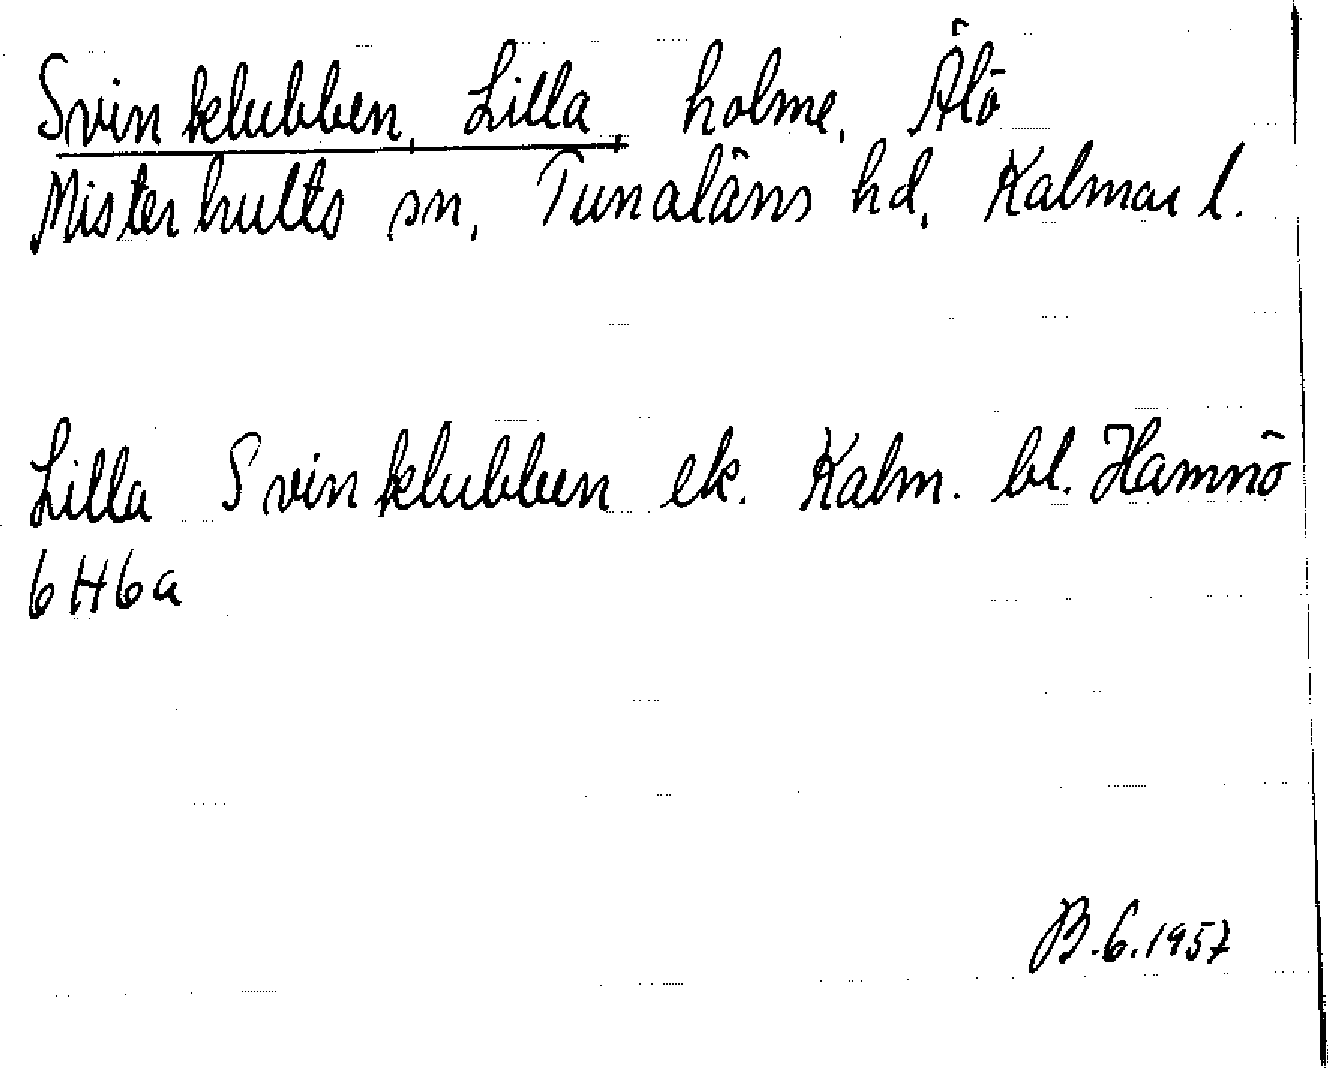 Svinklubben, Lilla, holme, Älö
Misterhults sn, Tunaläns hd, Kalmar l.
Lilla Svinklubben ek. Kalm. bl. Hamnö
6H6a
B.6.1957